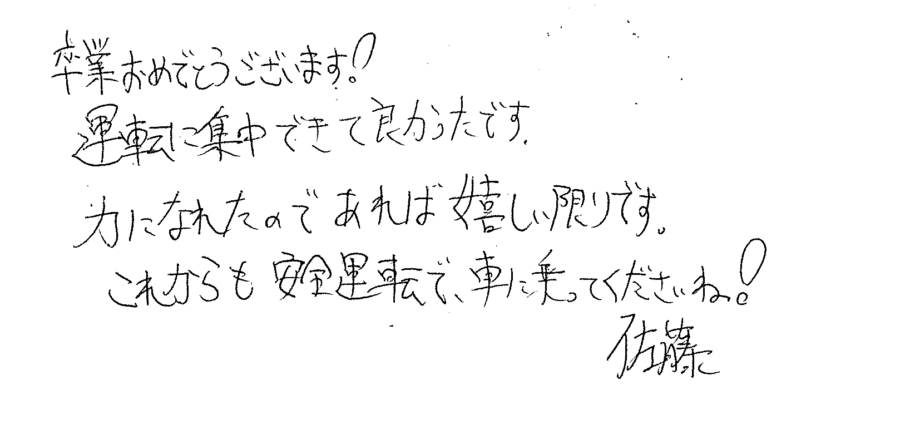 卒業おめでとうございます!
運転に集中できて良かったです.
力になれたのであれば嬉しい限りです。
これからも安全運転で、車に乗ってくださいね!
佐藤